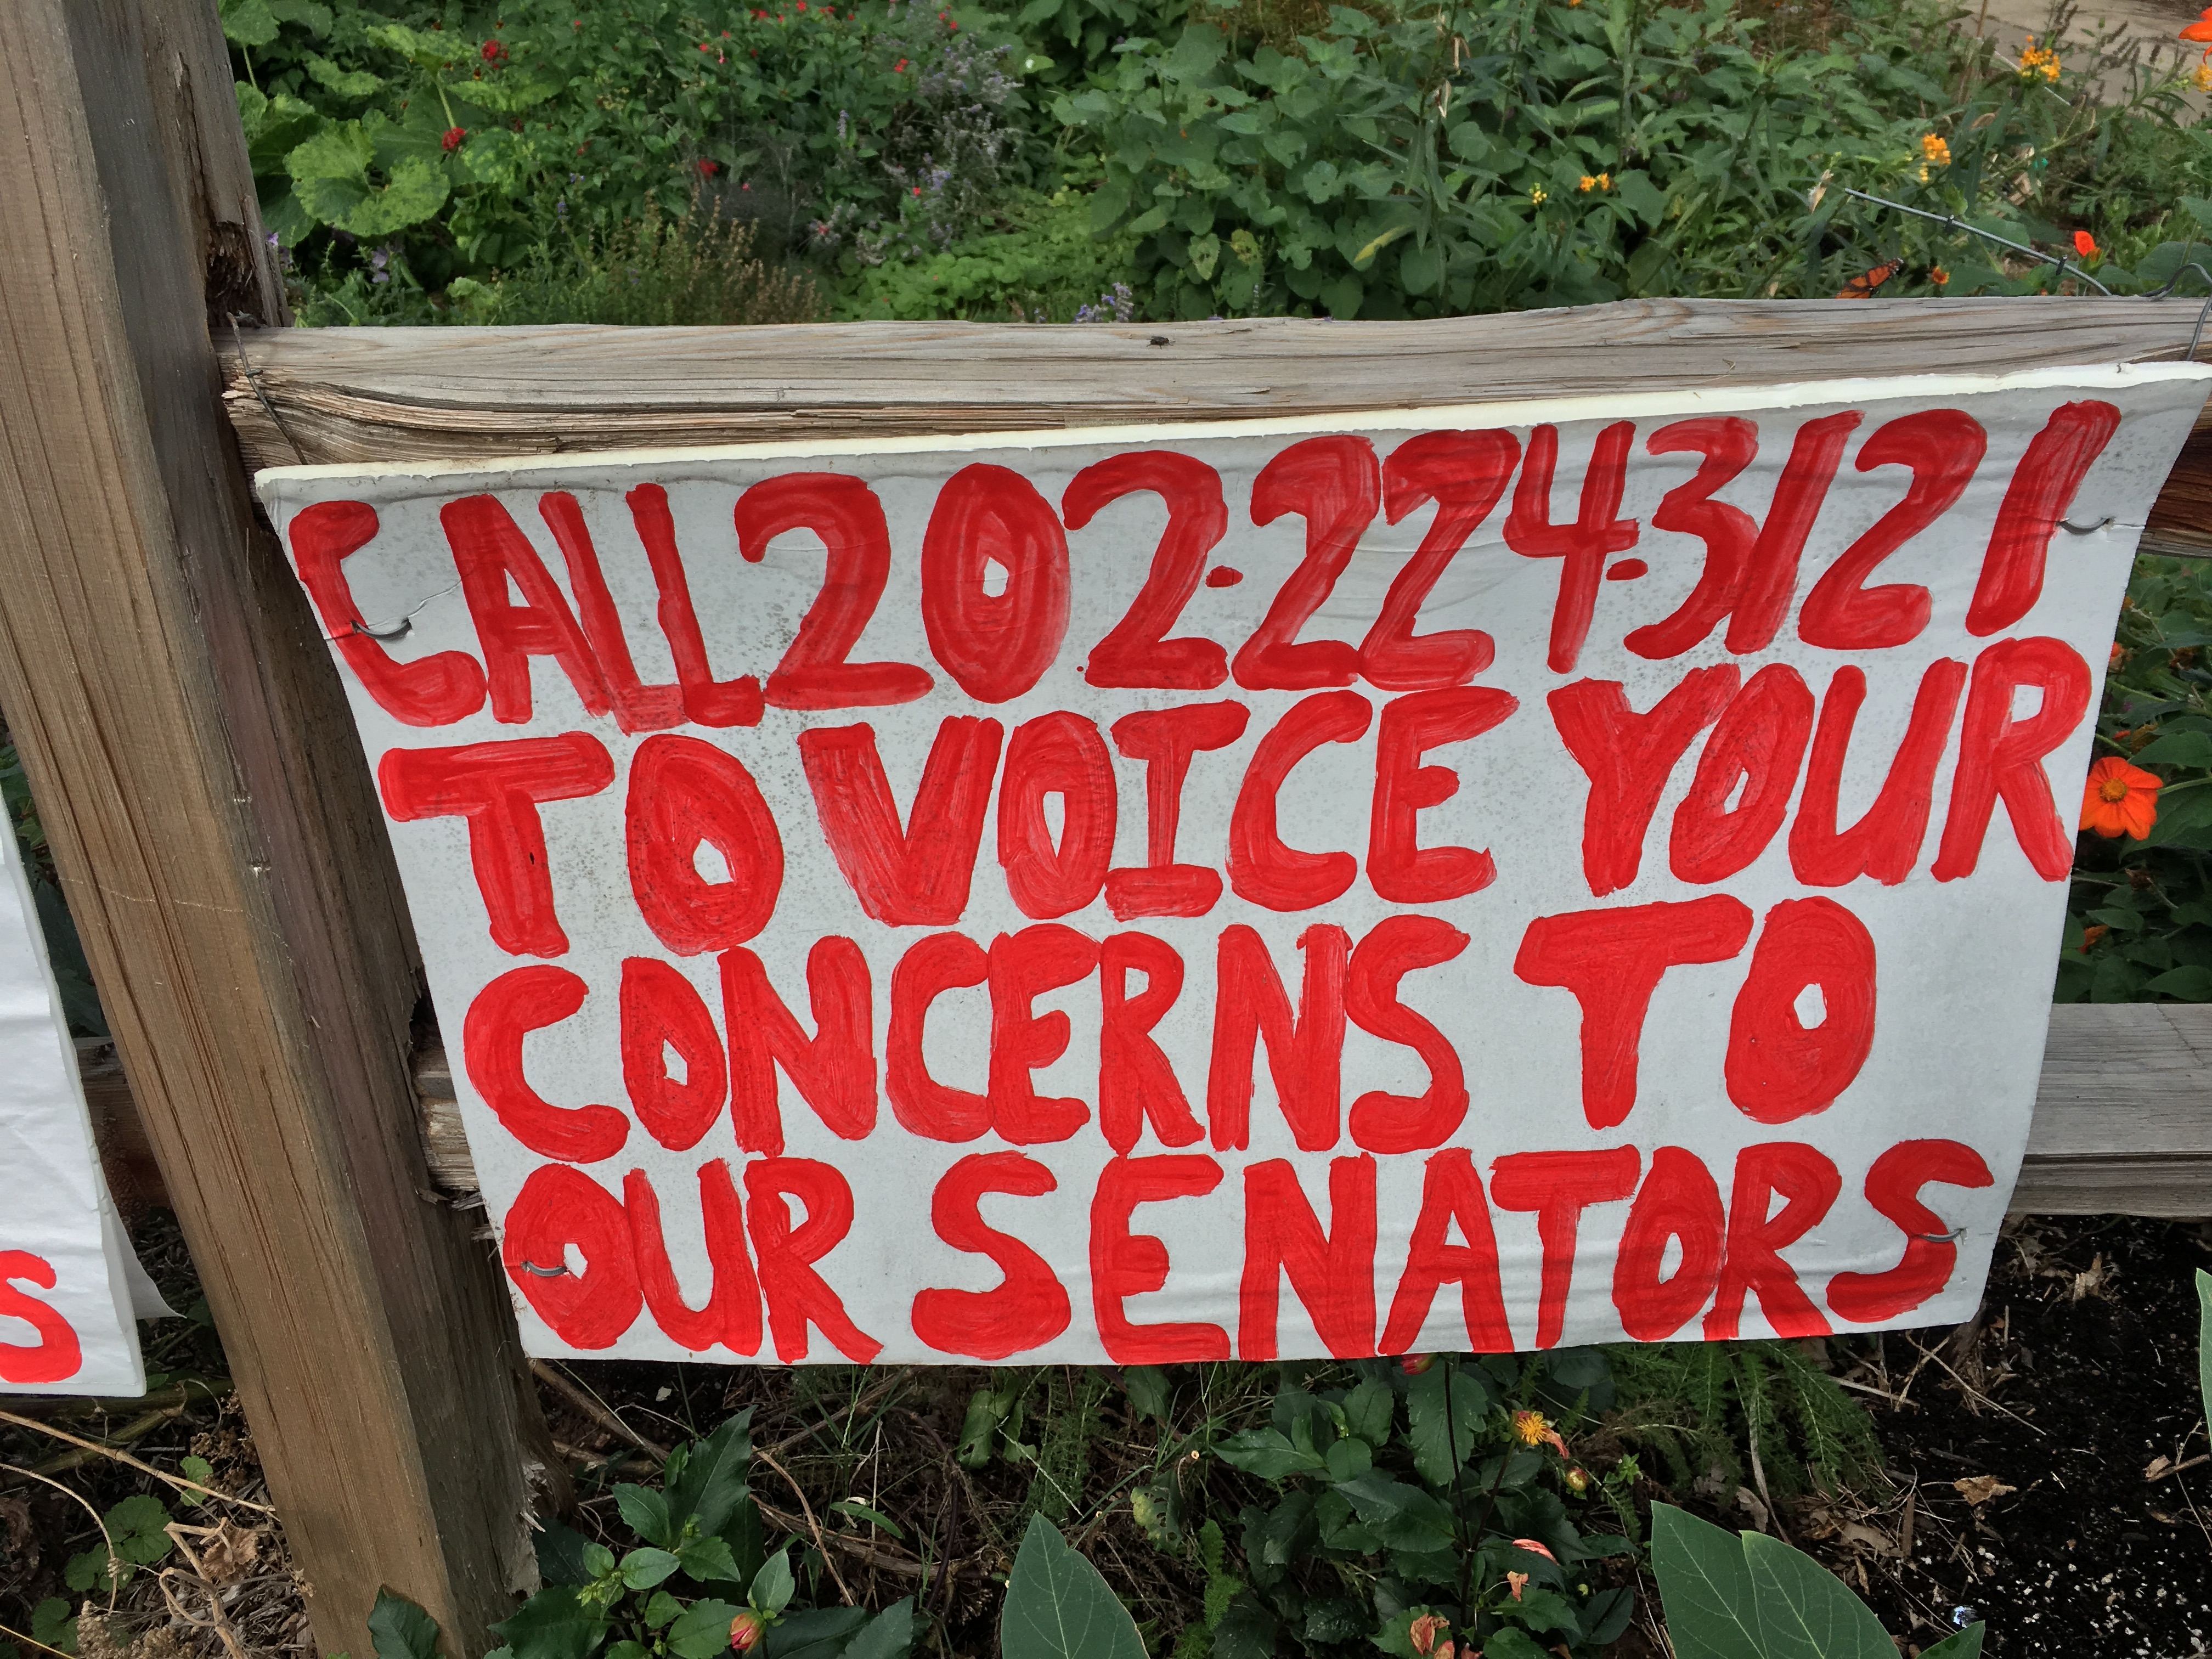 CALL 202.224.3121
TO VOICE YOUR
CONCERNS TO
OUR SENATORS
S